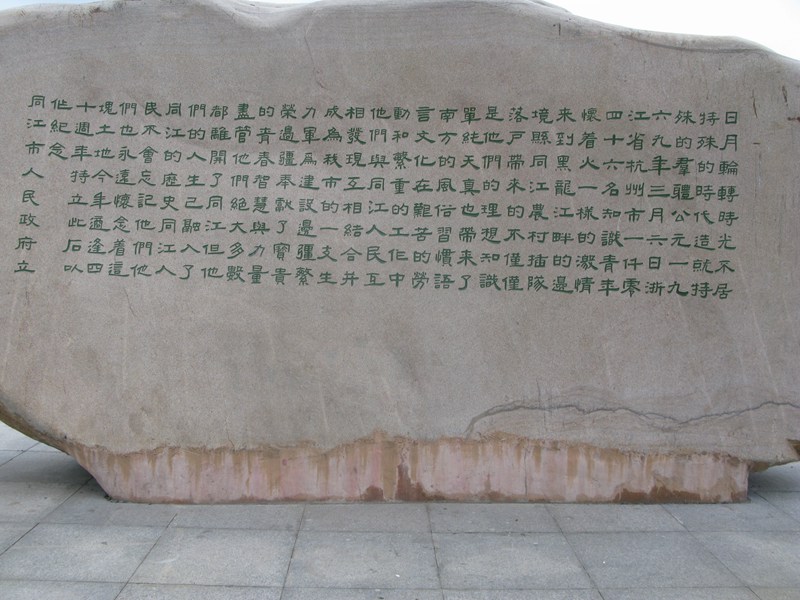 日月輪轉時光不居
特殊的時代造就特
殊的羣體公元一九
六九年三月六日浙
江省杭州市一仟零
四十六名知識青年
懷着火一樣的激情
來到黑龍江畔的邊
境縣同江農村插隊
落戶帶來的不僅僅
是他們的理想知識
單純天真也帶來了
南方的風俗習慣語
言文化在艱苦的勞
動和繁重的工作中
他們與同江人民互
相發現互相結合并
成為我市的一支生
力軍為建設邊疆繁
榮邊疆奉獻了寶貴
的青春智慧與力量
盡管他們絕大多數
都離開了同江但他
們的人生己融入了
同江的歷史同江人
民不會忘記他們他
們也永遠懷念着這
塊土地今年適逢四
十週年特立此石以
作紀念
同江市人民政府立